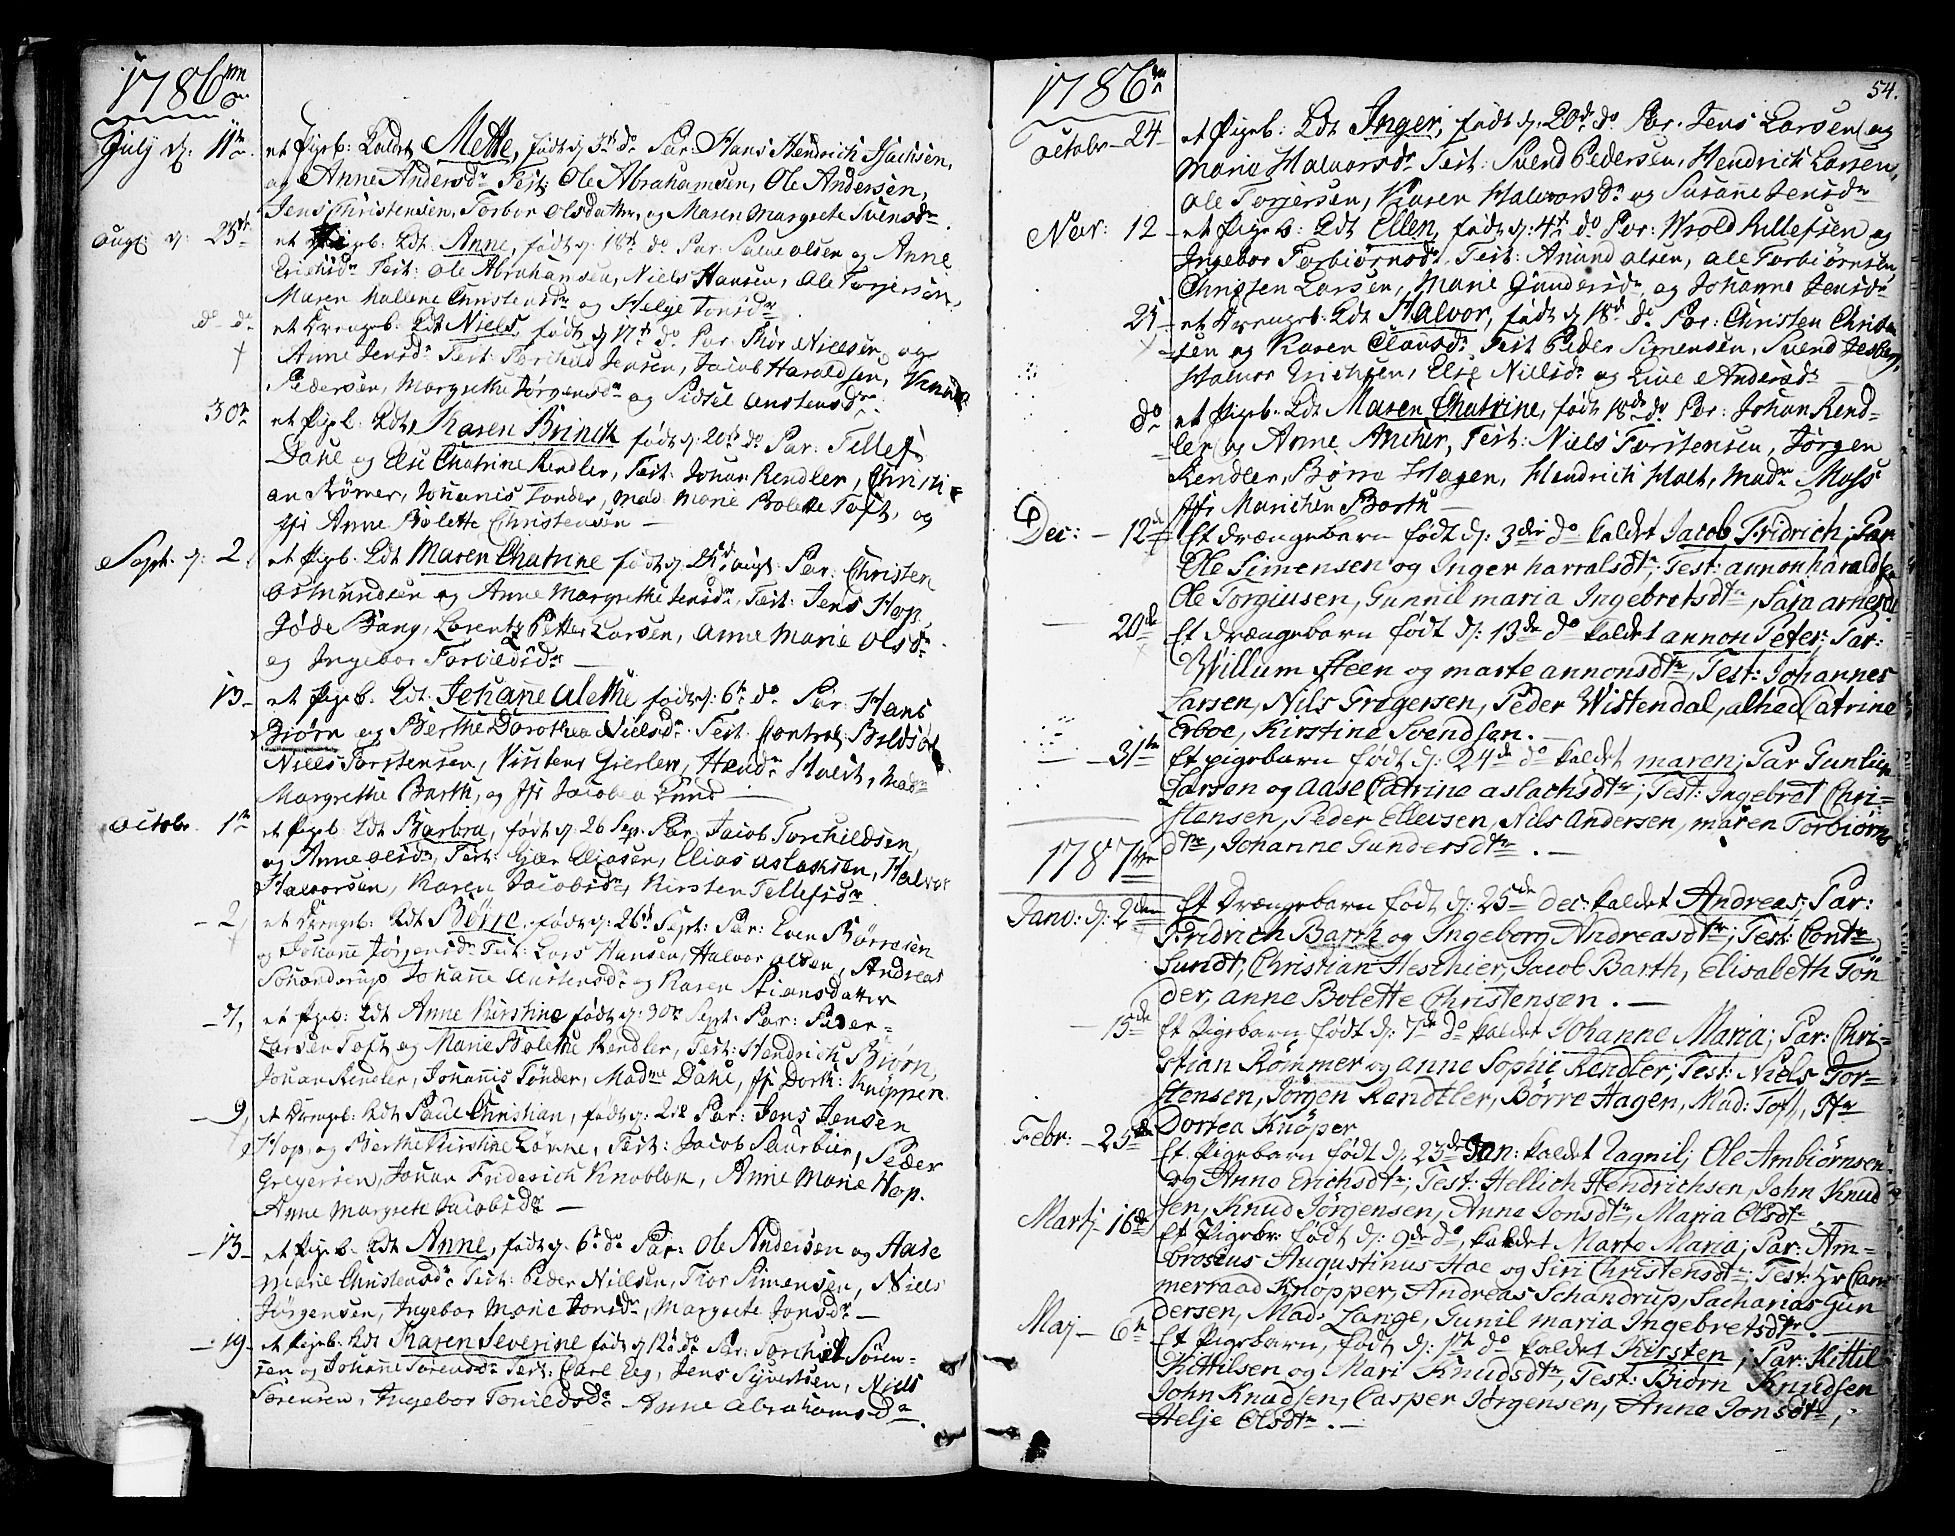 1786
July d: 11te et Pigeb: Kaldet Mette, født d: 3de do Par: Hans Hendrich Isachsen,
og Anne Andersdr Test: Ole Abrahamsen, Ole Andersen,
Jens Christensen, Torbor Olsdatter, og Maren Margrete Svensdr
Aug: d: 25de et Pigb. Kdt: Anne, født d: 18de do Par: Salve Olsen og Anne
Erichsdr Test: Ole Abrahamsen, Niels Hansen, Ole Torjersen,
Maren Mallene Christensdr og Helge Jonsdr
do do et Drengeb. Kdt Niels, født d 17de do Par: Thor Nielsen, og
Anne Jensdr Test: Torchild Jensen, Jacob Haraldsen, Knud
Pedersen, Margrethe Jørgensdr og Sidsel Austensdr
30te et Pigeb. Kdt, Karen Brinch født d: 20de do Par: Tellef
Dahl og Else Chatrine Rendler, Test: Johan Rendler, Christi-
an Rømer, Johanis Tønder, Mad: Marie Bolette Toft, og
Jfr Anne Bolette Christensen —
Sept. d: 2 et Pigeb. Kdt Maren Chatrine født d: 25de Augt: Par: Christen
Osmundsen og Anne Margrethe Jensdr Test: Jens Hop,
Jøde Bang, Lorentz Petter Larsen, Anne Marie Olsdr
og Ingebor
13 et Pigeb. Kdt: Johanne Alethe født d: 6te do Par: Hans
Biørn og Berthe Dorothea Nielsdr Test: Control:
Niels Torstensen, Gierlev, Hend: Holst, Madm
Margrethe Barth, og Jfr Jacobea Lund —
Octobr. 1te et Pigeb Kdt Barbra, født d: 26 Sep. Par: Jacob Torchildsen,
og Anne Olsdr, Test: Giær Eliasen, Elias Aslaksen, Halvor
Halvorsen, Karen Jacobsdr, Kirsten Tellefsdr
2 et Drengeb: Kdt Børre, født d: 26de Sept: Par: Even Børresen
og Johanne Jørgensdr Test: Lars Hansen, Halvor Olsen, Andreas
Schanderup Johanne Austensdr og Karen Stiansdatter
7, et Pigeb: Kdt Anne Kirstine født d: 30te Sept: Par: Peder
Larsen Toft og Marie Bolethe Rendler, Test: Hendrich Biørn,
Johan Rendler, Johannis Tønder, Madme Dahl, Jfr Dorth: Knøppen.
9, et Drengeb: Kdt Paul Christian, født d: 2de Par: Jens Jensen
Hop, og Berthe Kirstine Lønne, Test: Jacob Saurbier, Peder
Gregersen, Johan Friderich Knoblok, Anne Marie Hop.
Anne Margrete Jacobsdr —
13 et Pigeb. Kdt Anne, født d. 6te do Par: Ole Andersen og Aase
Marie Christensdr Test: Peder Nielsen, Tior Simensen, Niels
Jørgensen, Ingebor Marie Jonsdr, Margrete Jonsdr —
19 et Pigeb: Kdt Karen Severine født d 12te do Par: Torchild Søren-
sen og Johanne Sørensdr Test: Carl Eeg, Jens Syvertsen, Niels
Sørensen, Ingebor Torildsdr Anne Abrahamsdr
1786
54.
Octobr 24 et Pigeb: Kdt Inger, født d: 20de do Par: Jens Larsen og
Marie Halvorsdr Test: Svend Pedersen, Hendrich Larsen,
Ole Torjersen, Karen Halvorsdr og Susanne Jensdr
Nov: 12 et Pigeb: Kdt Ellen, født d: 4de do Par: Wrold Tellefsen og
Ingebor Torbiørnsdr, Test: Anund Olsen, Ole Torbiørnsen
Christen Larsen, Marie Gundersdr og Johanne Jensdr
25 et Drengeb: Kdt Halvor, født d 18de do Par: Christen Christen-
sen og Karen Clausdr Test Peder Simensen, Svend
Halvor Erichsen, Else Nielsdr og Live Andersdr —
do et Pigeb. Kdt Maren Chatrine, født 18de do Par: Johan Rend-
ler og Anne Ancher, Test: Niels Torstensen, Jørgen
Rendler, Børre Hagen, Hendrich Holt, Madm Moss
Jfr Marichen Barth
Dec: 12te Et drængebarn født d: 3die do kaldet Jacob Fridrich; Par
Ole Simensen og Inger harralsdtr; Test: annon haralds.
Ole Torgiusen, Gunnil maria Ingebretsdtr, Sara arnesdtr
20de Et drængebarn født d: 13de do kaldet annon Peter; Par:
Willum Steen og marte annonsdtr, Test: Johannes
Larsen, Nils Gregersen, Peder Wistendal, alhed Catrine
Erboe, Kirstine Svendsen. —
31te Et pigebarn født d: 24de do kaldet maren; Par Gunlich
Larsen og Aase Catrine aslachsdtr; Test: Ingebret Chri-
stensen, Peder Ellevsen, Nils Andersen, maren Torbiørns
dtr, Johanne Gundersdtr. —
1787
Janv: d: 2den Et drængebarn født d: 25de dec: kaldet Andreas; Par:
Fridrich Barth og Ingeborg Andreasdtr; Test: Contr
Sundt, Christian Heschier, Jacob Barth, Elisabeth Tøn
der, anne Bolette Christensen. —
15de Et Pigebarn født d: 7de do kaldet Johanne Maria; Par: Chri-
stian Rømmer og anne Sophie Rendler; Test: Niels Tor-
stensen, Jørgen Rendtler, Børre Hagen, Mad: Toft, Jfr
Dortea Knøper
Febr: 25de Et Pigebarn født d: 23de Jan: kaldet Ragnil; Ole Ambiørnsen
og Anno Erichsdtr; Test: Hellich Hendrichsen, John Knud
sen, Knud Jørgensen, Anne Jonsdtr, Maria Olsdtr
Martj 16de Et Pigebr: født d: 9de do, kaldet Marte Maria; Par: Am-
brosius Augustinus Hoe og Siri Christensdtr; Test: Hr Cam
merraad Knøpper, Andreas Schandrup, Sacharias Gun
dersen, Mad: Lange, Gunil maria Ingebretsdtr. —
Maj 6te Et Pigebarn, født d: 1te do kaldet Kirsten; Par: Kittil
Kittilsen og Mari Knudsdtr, Test: Biørn Knudsen
John Knudsen, Casper Jørgensen, Anne Jonsdtr,
Helje Olsdtr. —